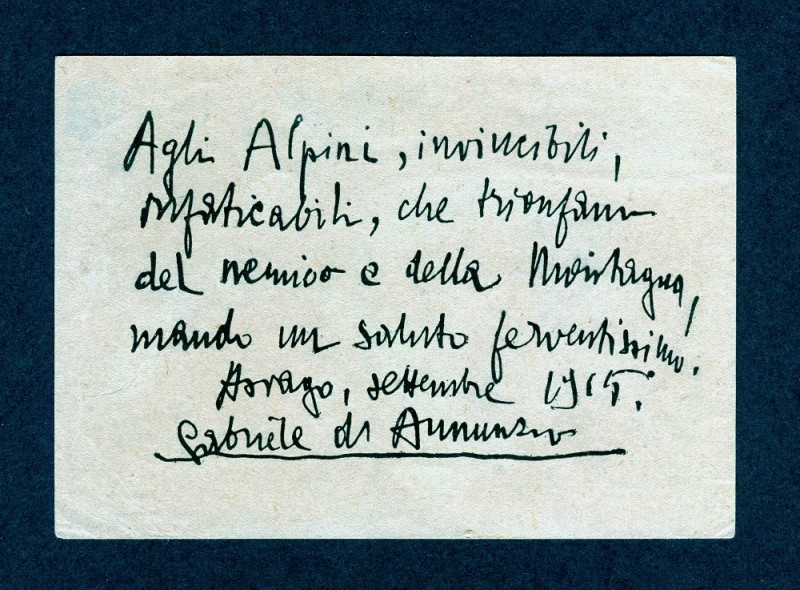 Agli Alpini, invincibili,
infaticabili, che trionfano
del nemico e della Montagna,
mando un saluto ferventissimo.
Asiago, settembre 1915.
Gabriele d'Annunzio